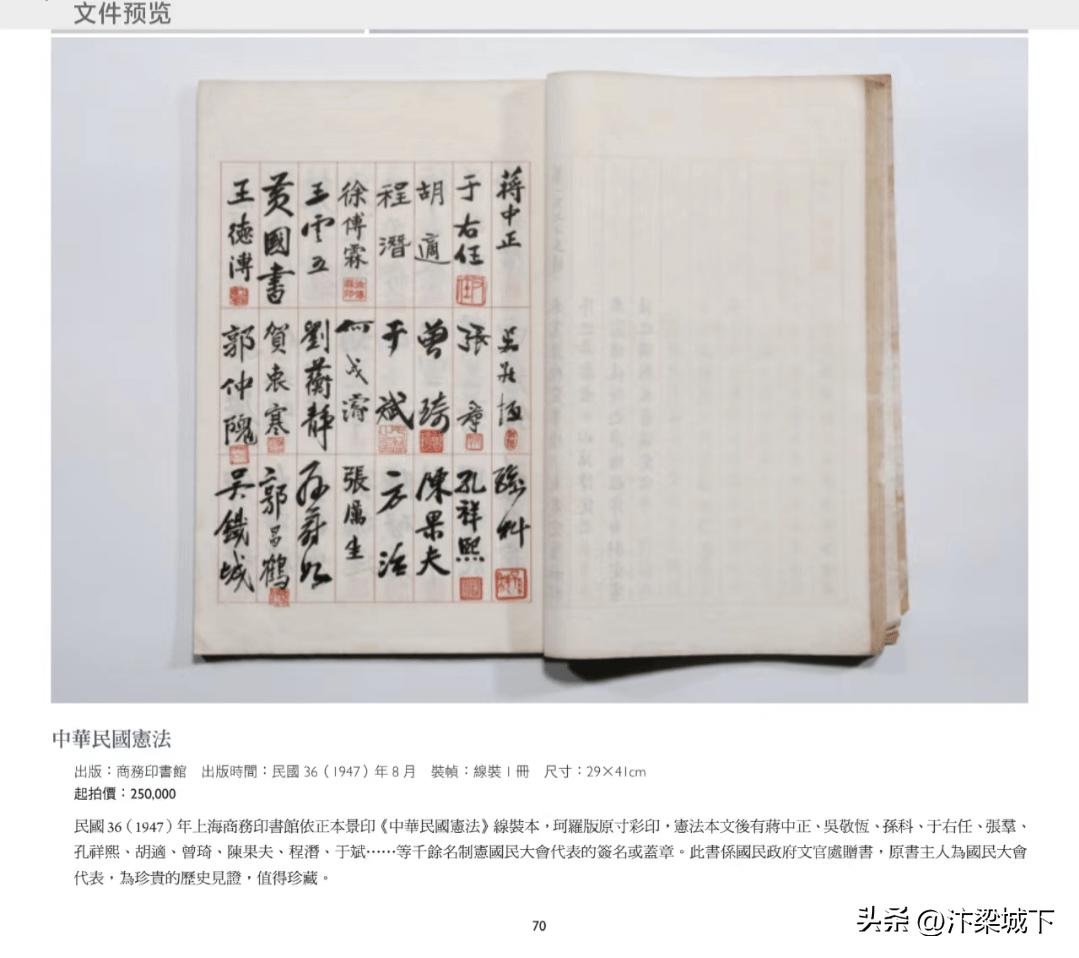 文件预览
蔣中正
吳敬恆
孫科
于右任
張羣
孔祥熙
胡適
曾琦
陳果夫
程潛
于斌
方治
徐傅霖
何成濬
張厲生
王雲五
劉蘅靜
黃國書
賀衷寒
郭昌鶴
王德溥
郭仲隗
吳鐵城
中華民國憲法
出版：商務印書館 出版時間：民國 36（1947）年 8 月 裝幀：線裝 1 冊 尺寸：29×41cm
起拍價：250,000
民國 36（1947）年上海商務印書館依正本景印《中華民國憲法》線裝本，珂羅版原寸彩印，憲法本文後有蔣中正、吳敬恆、孫科、于右任、張羣、
孔祥熙、胡適、曾琦、陳果夫、程潛、于斌……等千餘名制憲國民大會代表的簽名或蓋章。此書係國民政府文官處贈書，原書主人為國民大會
代表，為珍貴的歷史見證，值得珍藏。
70
头条 @汴梁城下